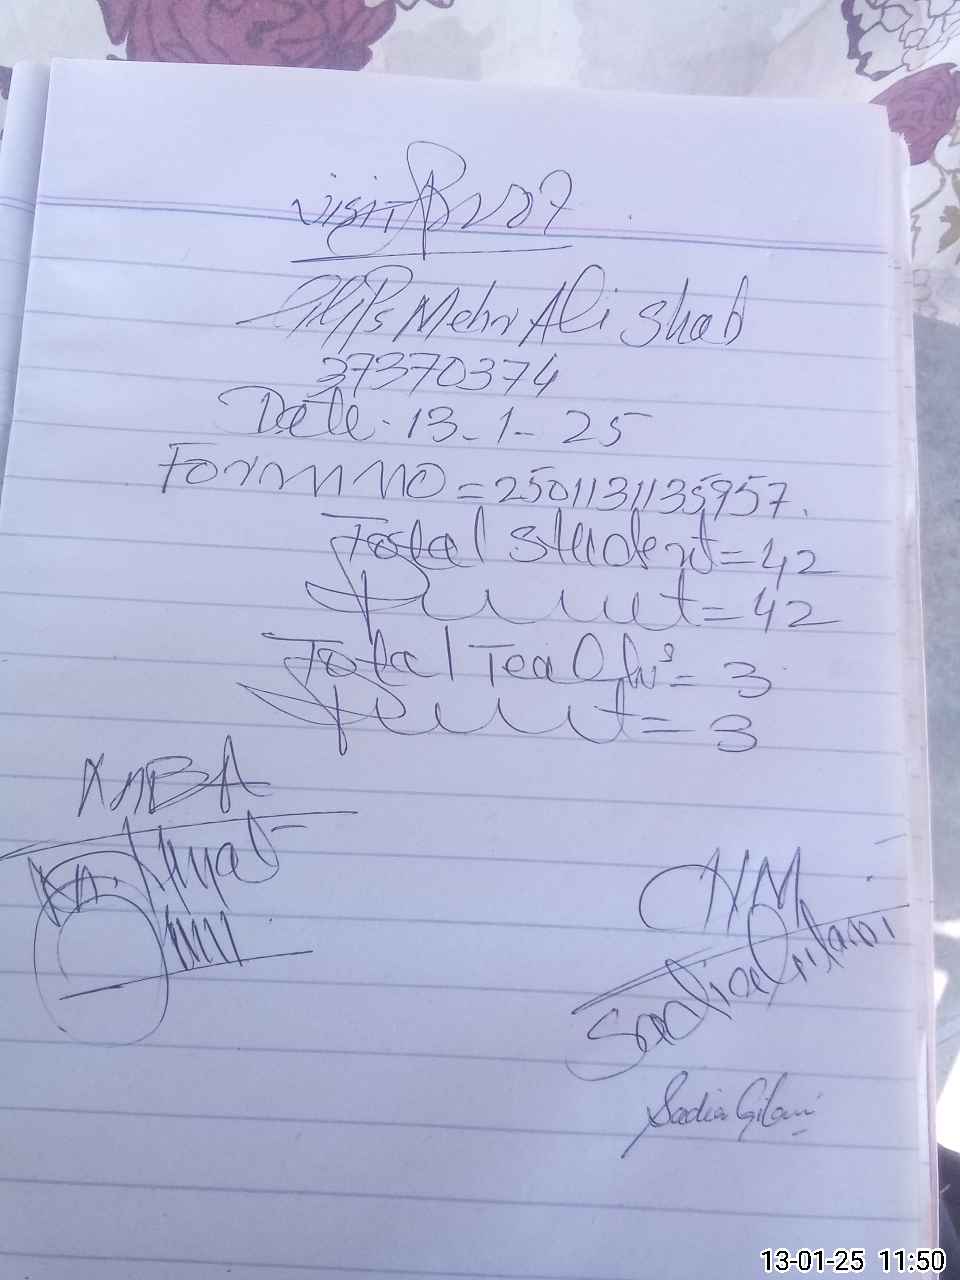 Visit
GGPS Mehr Ali Shah
37370374
Date. 13-1-25
Form NO = 2501131135957.
Total Student = 42
= 42
Total Teacher = 3
= 3
HM
Sadia Gilani
Sadia Gilani
13-01-25 11:50